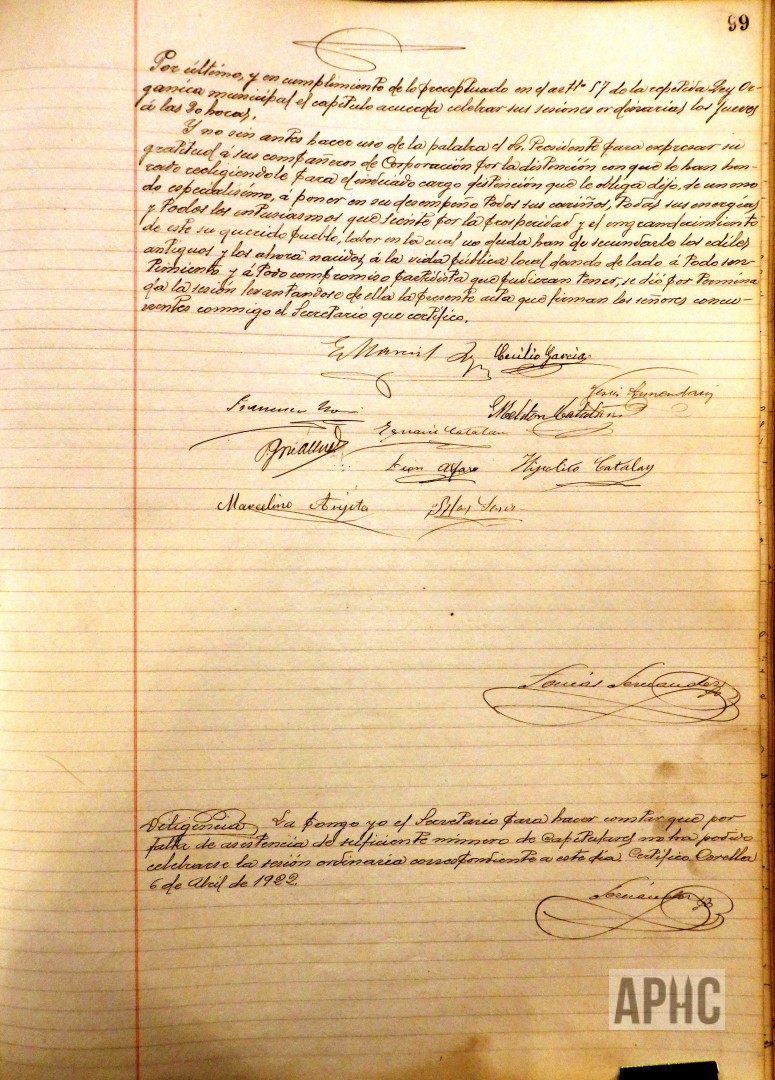 99
Por último, y en cumplimiento de lo preceptuado en el artto 57 de la repetida Ley Or-
gánica municipal el capitulo acuerda celebrar sus sesiones ordinarias los jueves
á las 20 horas.
Y no sin antes hacer uso de la palabra el Sr. Presidente para expresar su
gratitud á sus compañeros de Corporación por la distinción con que le han hon-
rado reeligiendole para el indicado cargo distinción que le obliga dijo, de un mo
do especialisimo, á poner en su desempeño todos sus cariños, todas sus energias
y todos los entusiasmos que siente por la prosperidad y el engrandecimiento
de este su querido pueblo, labor en la cual no duda han de secundarle los ediles
antiguos y los ahora nacidos á la vida pública local dando de lado á todo sen-
timiento y á todo compromiso partidista que pudieran tener, se dió por termina
da la sesión levantandose de ella la presente acta que firman los señores concu-
rrentes conmigo el Secretario que certifico.
Cecilio Garcia
Jesús
Francisco Meliton Catalan
Ignacio Catalan
Leon Alfaro Hipolito Catalan
Marcelino Arijita
Fernandez
Diligencia La pongo yo el Secretario para hacer constar que por
falta de asistencia de suficiente número de Capitulares no ha podido
celebrarse la sesión ordinaria correspondiente a este dia. Certifico. Corella
6 de Abril de 1922.
Fernández
APHC